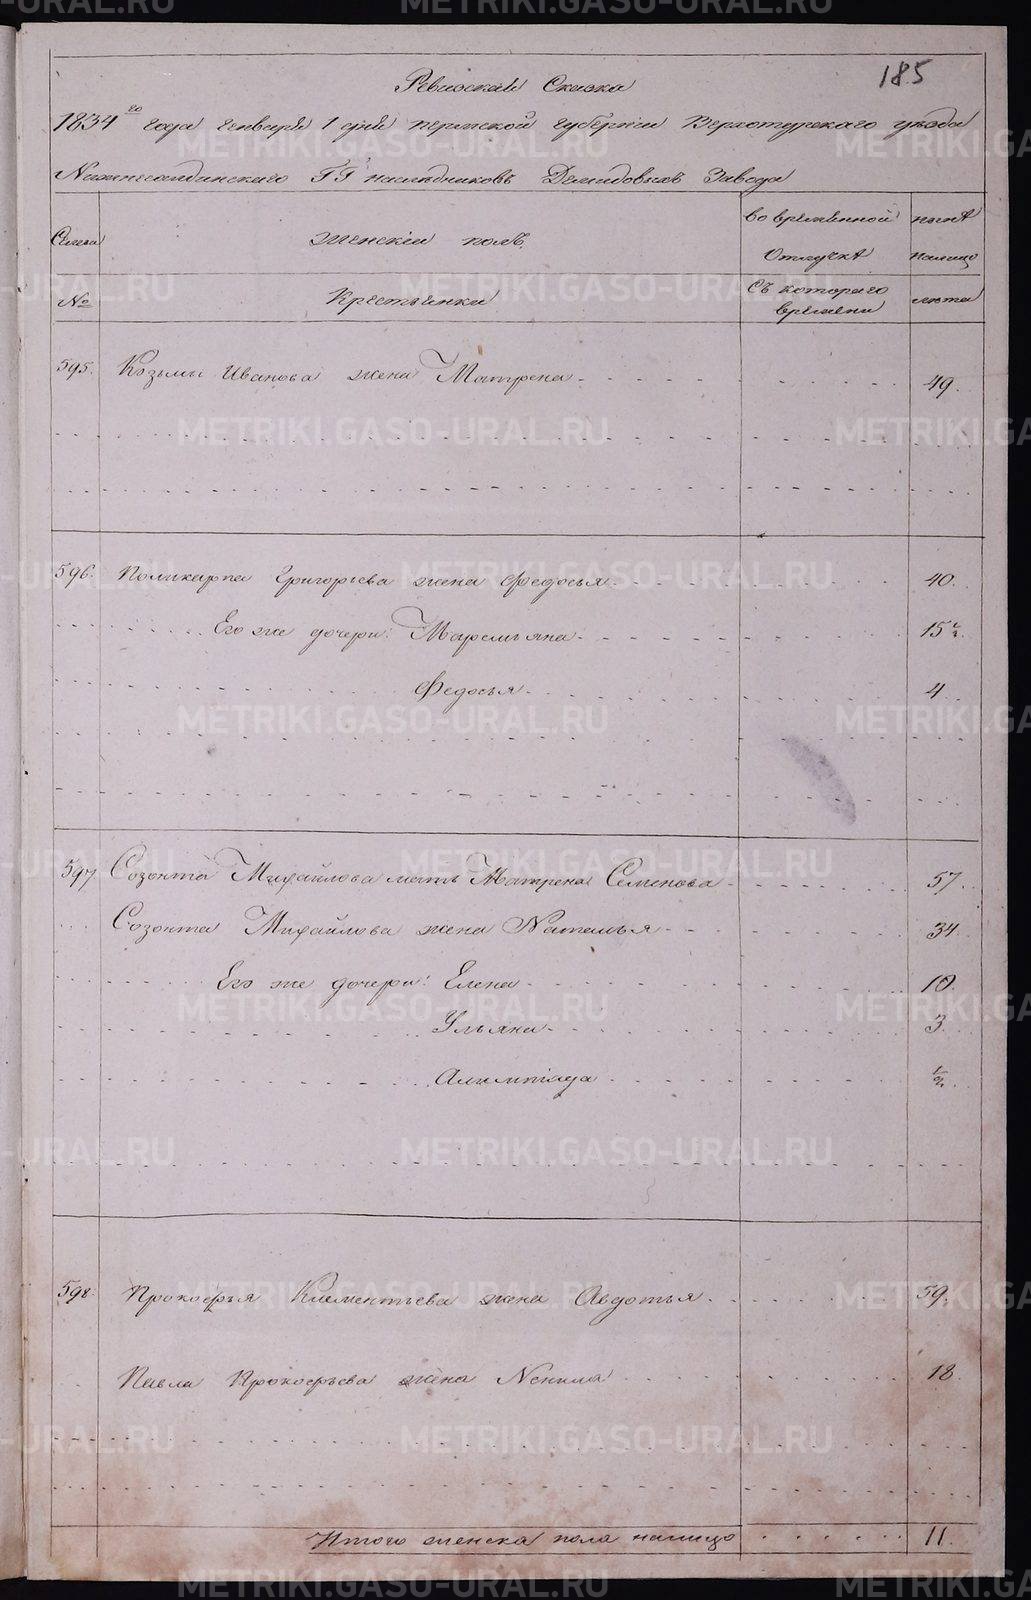 185
Ревизская Сказка
1834го года Генваря 1 дня Пермской Губернии Верхотурского уезда
Нижнесалдинского ГГ наследниковъ Демидовыхъ Завода
Семьи
Женский полъ.
во временной отлучке
ныне налицо
№
Крестьянки
Съ которого времени
лета
595. Козьмы Иванова жена Матрена 49.
596. Поликарпа Григорьева жена Федосья 40.
Его же дочери: Маремьяна 15 1/2.
Федосья 4
597. Созонта Михайлова мать Матрена Семенова 57.
Созонта Михайлова жена Наталья 34
Его же дочери: Елена 10.
Ульяна 3.
Алимпияда 1/2.
598. Прокофья Климентьева жена Авдотья 59.
Павла Прокофьева жена Ненила 18
Итого женска пола налицо 11.
METRIKI.GASO-URAL.RU